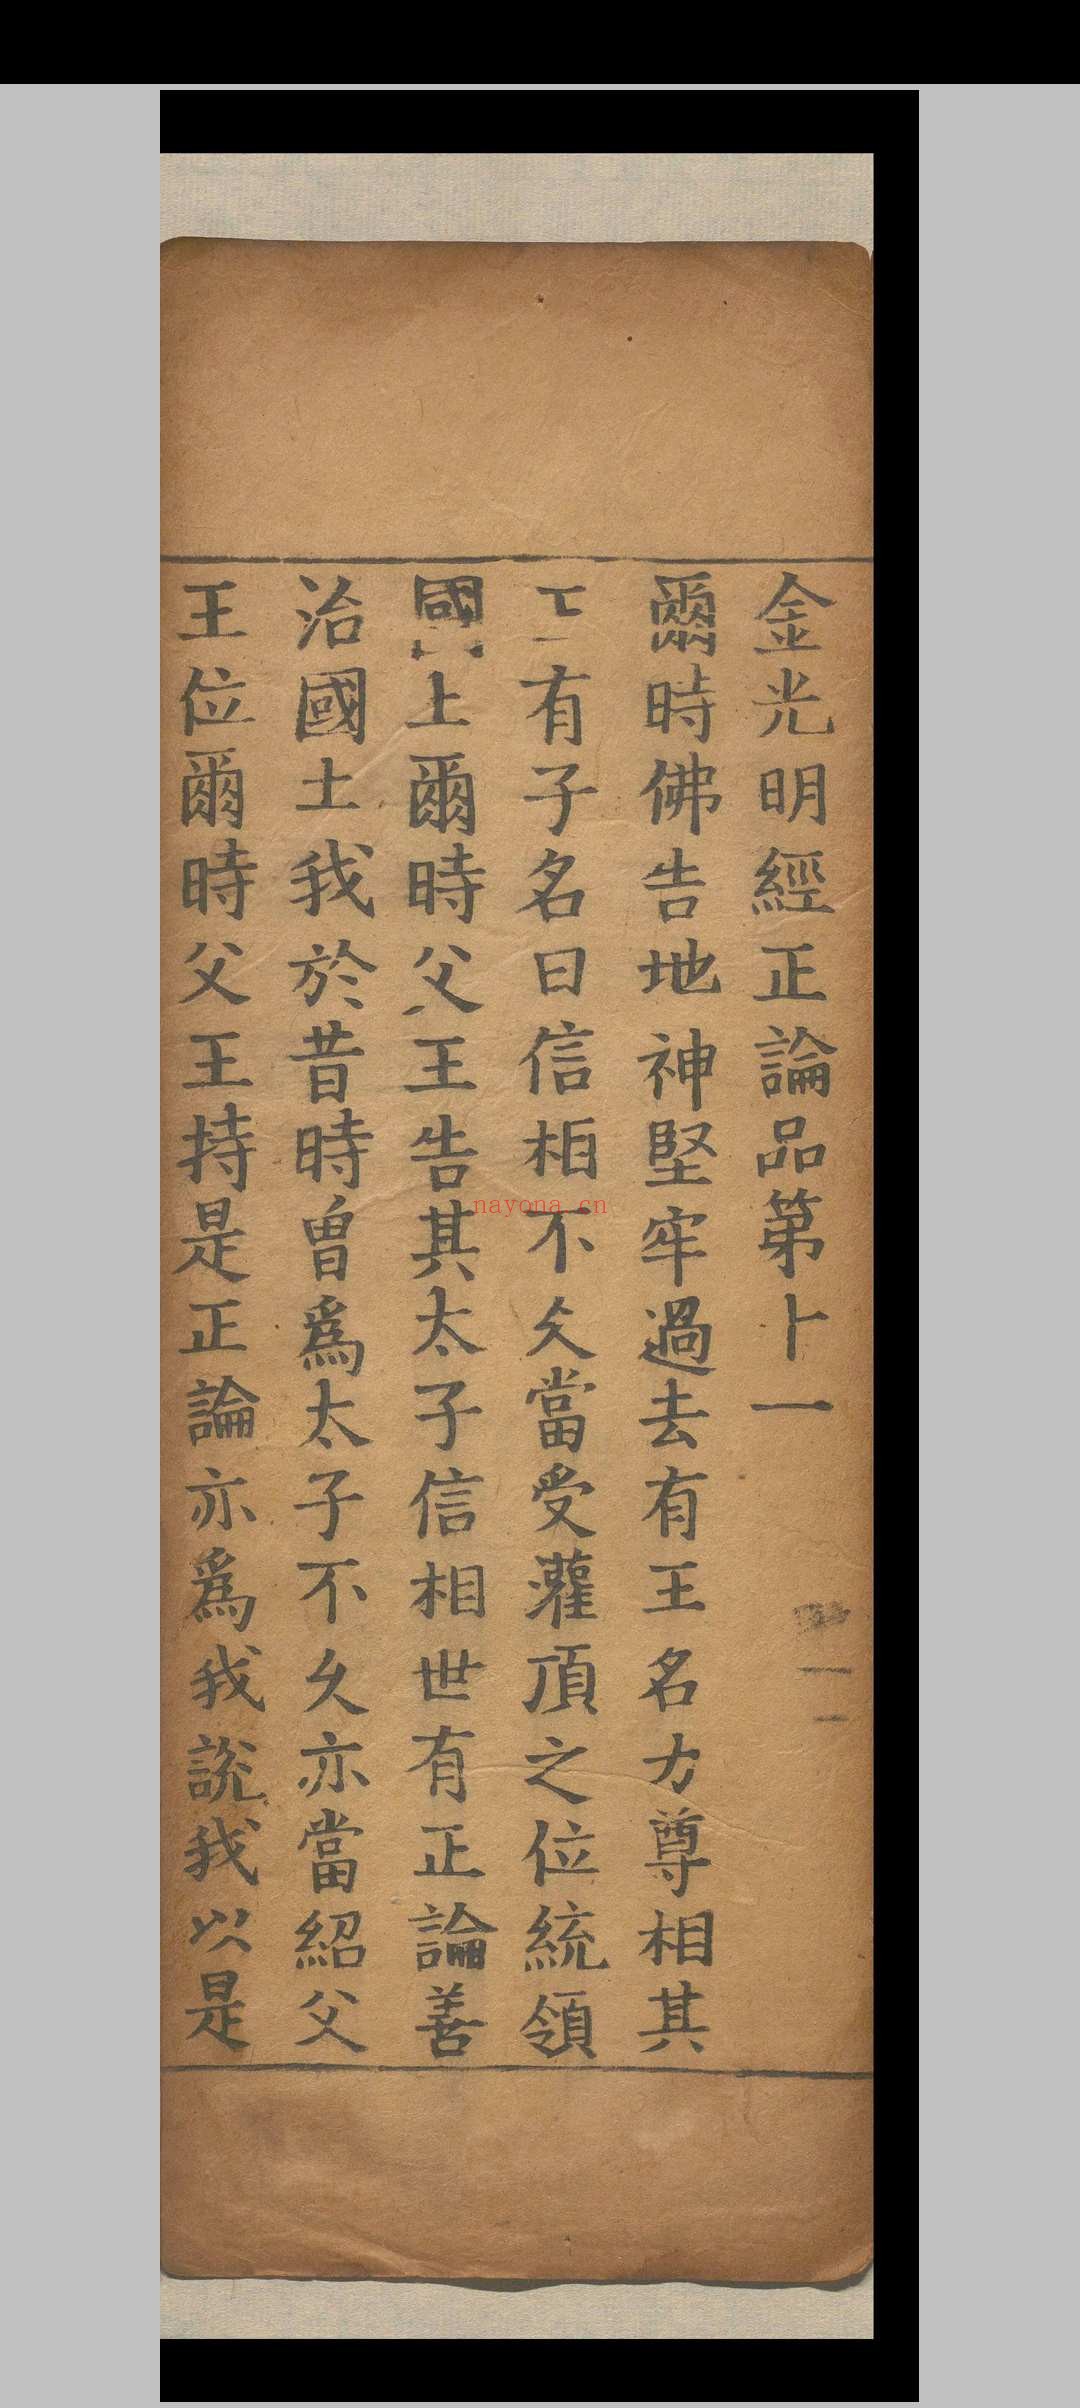 金光明經正論品第十一
爾時佛告地神堅牢過去有王名力尊相其
王有子名曰信相不久當受灌頂之位統領
國土爾時父王告其太子信相世有正論善
治國土我於昔時曾爲太子不久亦當紹父
王位爾時父王持是正論亦爲我說我以是
nayona.cn